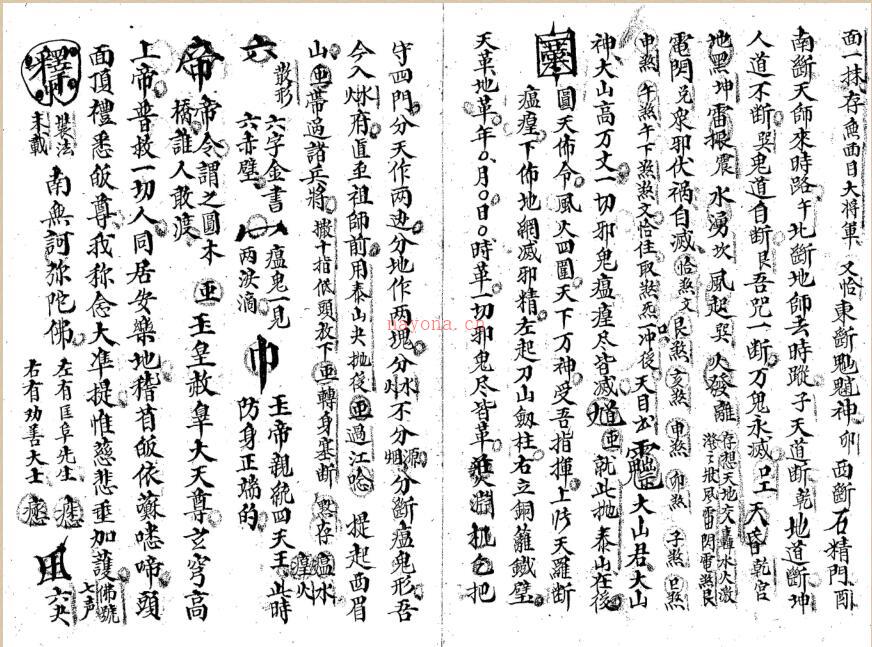 面一抹存魚面目大將軍 又恰 東斷魁魓神 卯 西斷石精門 酉
南斷天師來時路 午 北斷地師去時蹤 子 天道斷 乾 地道斷 坤
人道不斷 巽 鬼道自斷 艮 吾咒一斷万鬼永滅 天昏 乾宫
地黑 坤 雷振 震 水湧 坎 風起 巽 火發 離 存想天地交轟水火激
電閃 兌 衆邪伏禍自滅 恰煞文 艮煞 亥煞 申煞 卯煞 子煞 巳煞
申煞 午煞 午下煞煞文恰住取煞炁一冲後天目 大山君大山
神大山高万丈一切邪鬼瘟㾮尽皆滅 就此抛泰山在後
圓天佈令風火四圍天下万神受吾指揮上佈天羅斷
瘟㾮下佈地網滅邪精左起刀山劔柱右立銅籬鐵壁
天革地革年〇月〇日〇時革一切邪鬼尽皆革 把
守四門分天作两边分地作两塊分水不分源 分断瘟鬼形吾
今入水火府直至祖師前用泰山夬抛後 過江哈 提起西眉
山 帶過諸兵將 撒十指低頭放下 轉身塞断 默存 瘟水㾮火
散形 六字金書 瘟鬼一見 玉帝親統四天王 此時
六赤壁 两淚滴 防身正端的
帝令謂之圓木 玉皇赦皐大天尊玄穹高
橋誰人敢渡
上帝普救一切人同居安樂地稽首皈依蘇㗭啼頭
面頂禮悉皈尊我称念大凖提惟慈悲垂加護 佛號七声
裝法未載 南無訶弥陀佛 左有匡阜先生 六夬
右有劝善大士
nayona.cn